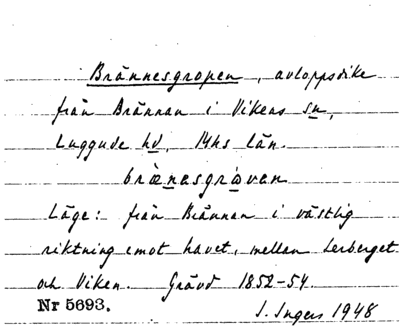 Brännesgropen, avloppsdike
från Brännan i Vikens sn,
Luggude hd, Mhs län.
brænesgråven
Läge: från Brännan i västlig
riktning emot havet, mellan Lerberget
och Viken. Grävd 1852-54.
Nr 5693.
I. Ingers 1948